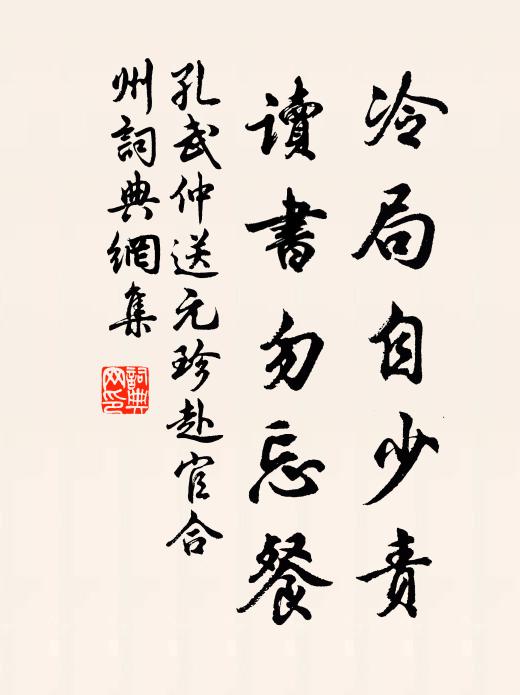 冷局自少责
讀書勿忘餐
孔武仲送元珍赴官合
州詞典網集
詞典网印